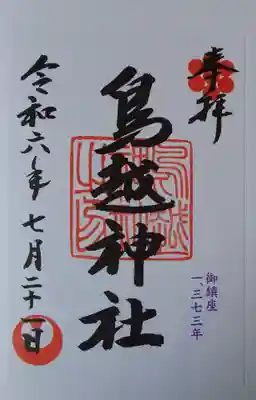 奉拝
鳥越神社
御鎮座
一、三七三年
令和六年七月二十一日